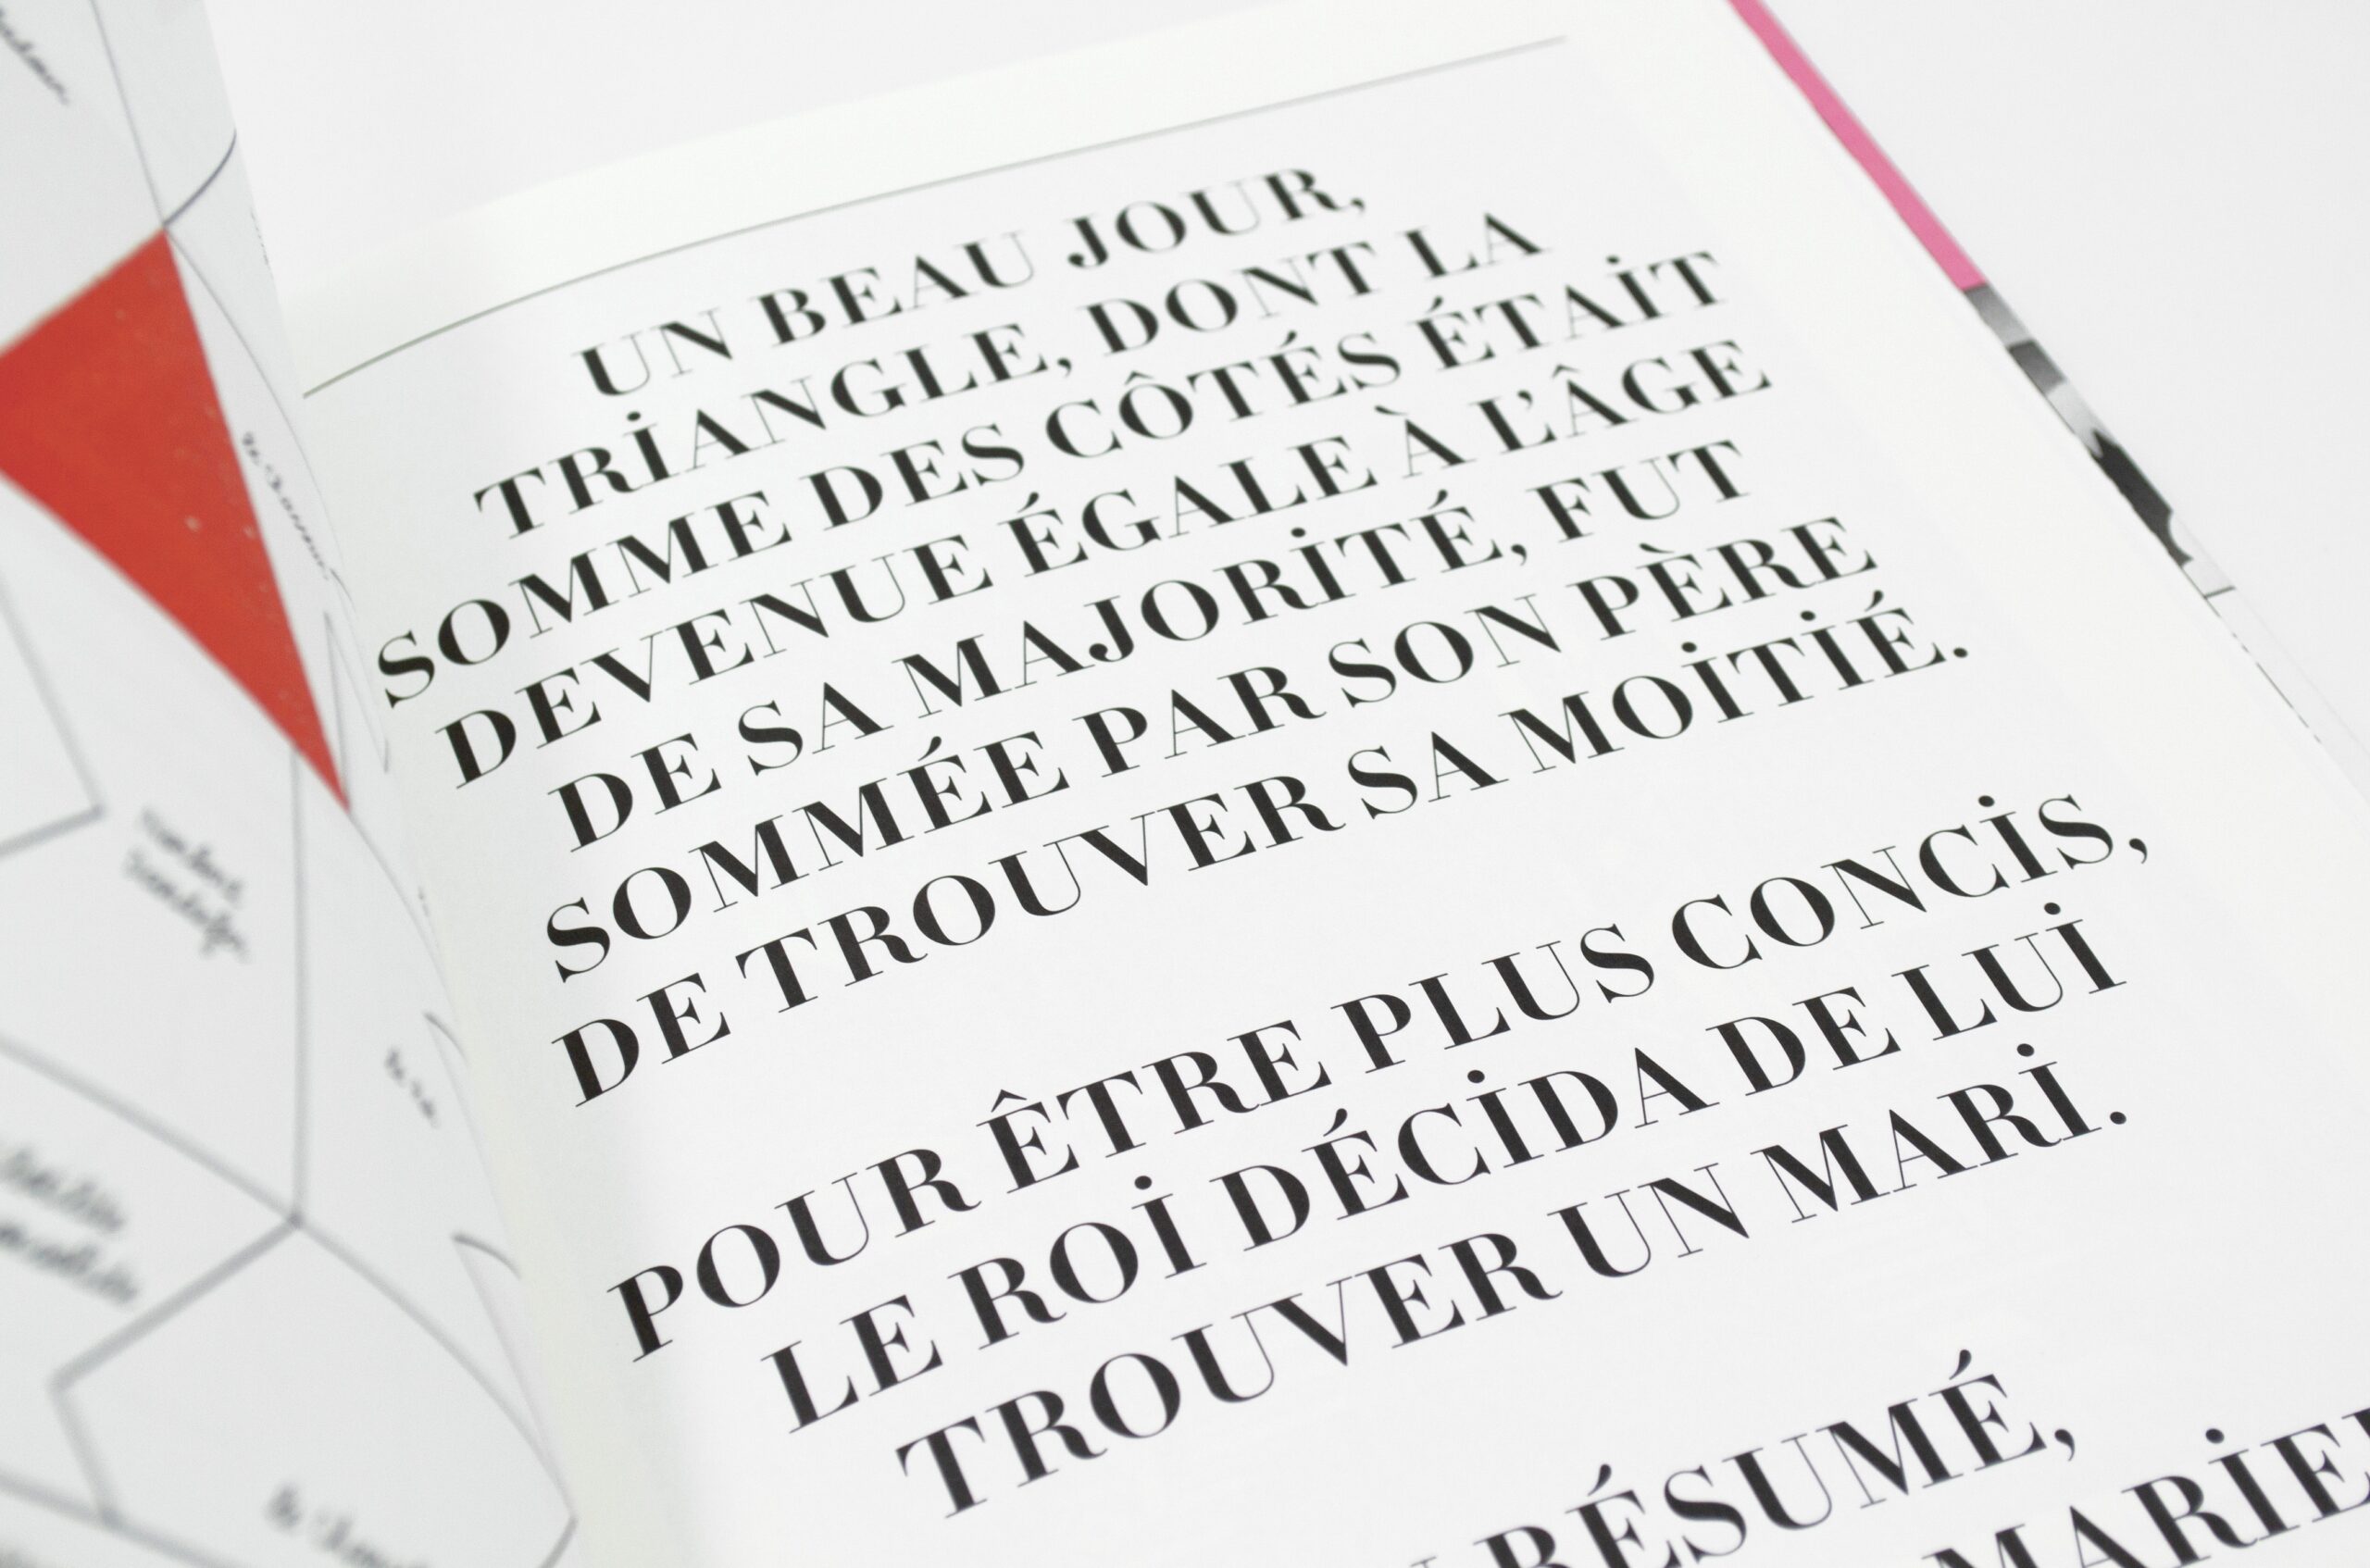 UN BEAU JOUR,
TRİANGLE, DONT LA
SOMME DES CÔTÉS ÉTAİT
DEVENUE ÉGALE À L'ÂGE
DE SA MAJORİTÉ, FUT
SOMMÉE PAR SON PÈRE
DE TROUVER SA MOİTİÉ.
POUR ÊTRE PLUS CONCİS,
LE ROİ DÉCİDA DE LUİ
TROUVER UN MARİ.
RÉSUMÉ,